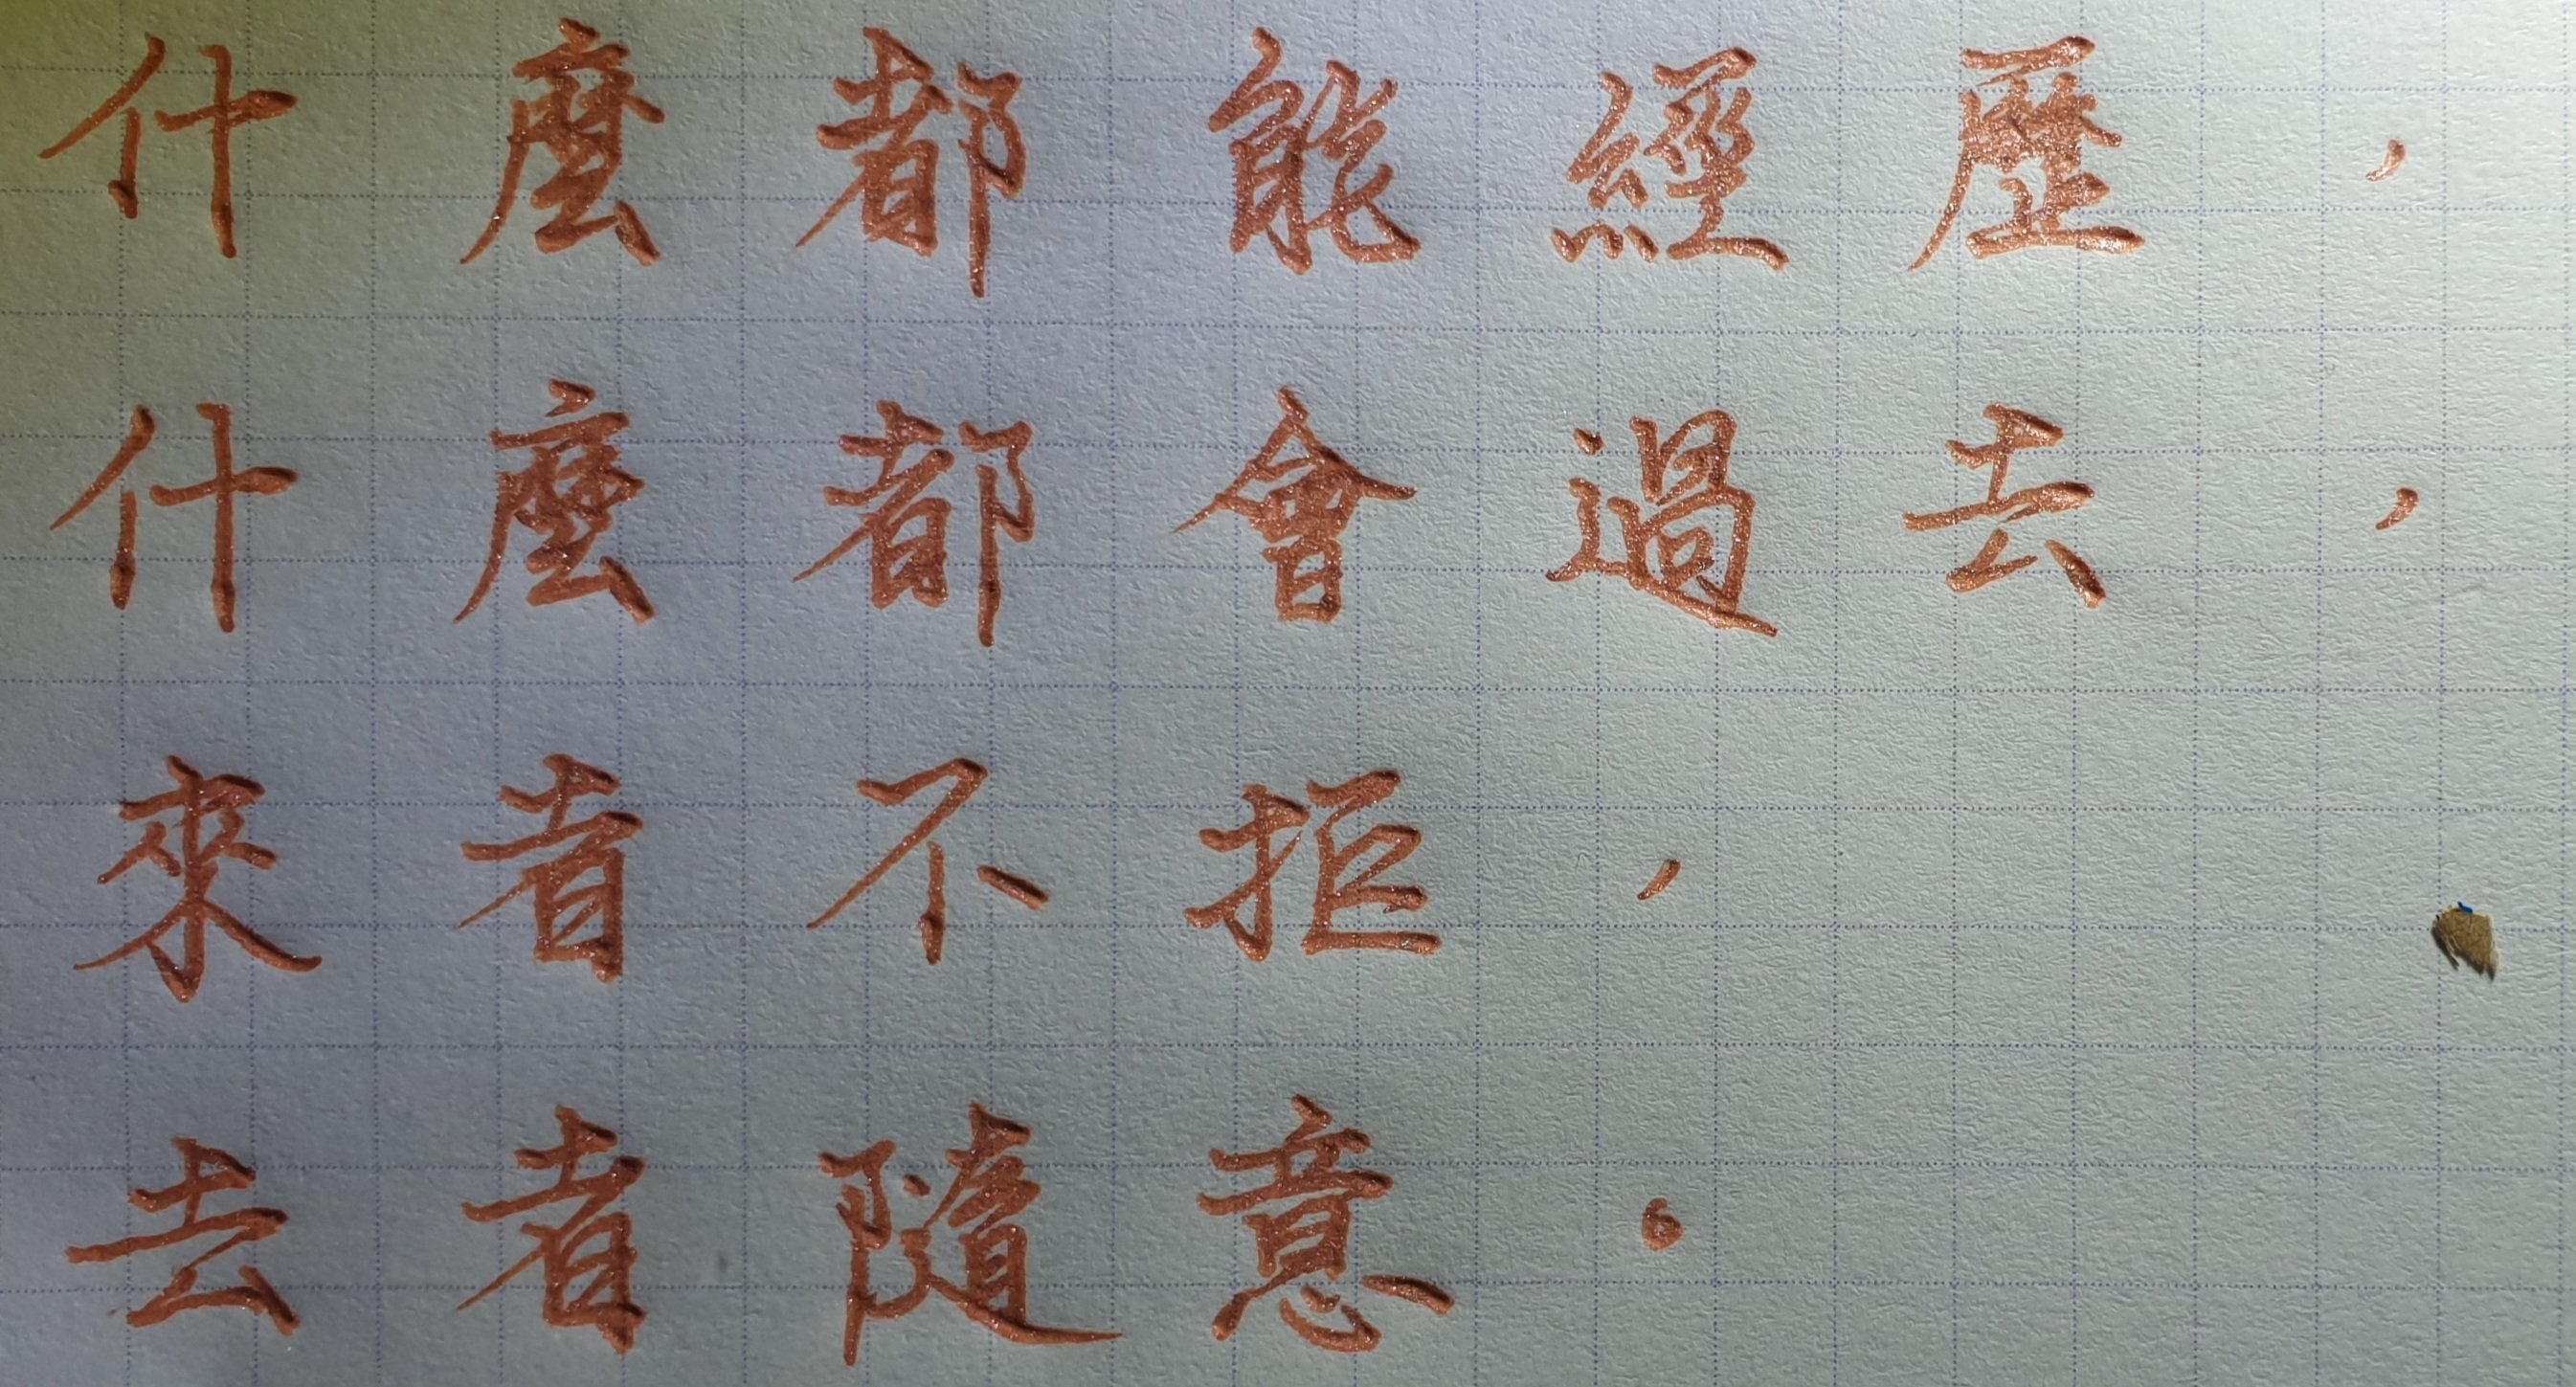 什麼都能經歷，
什麼都會過去，
來者不拒，
去者隨意。